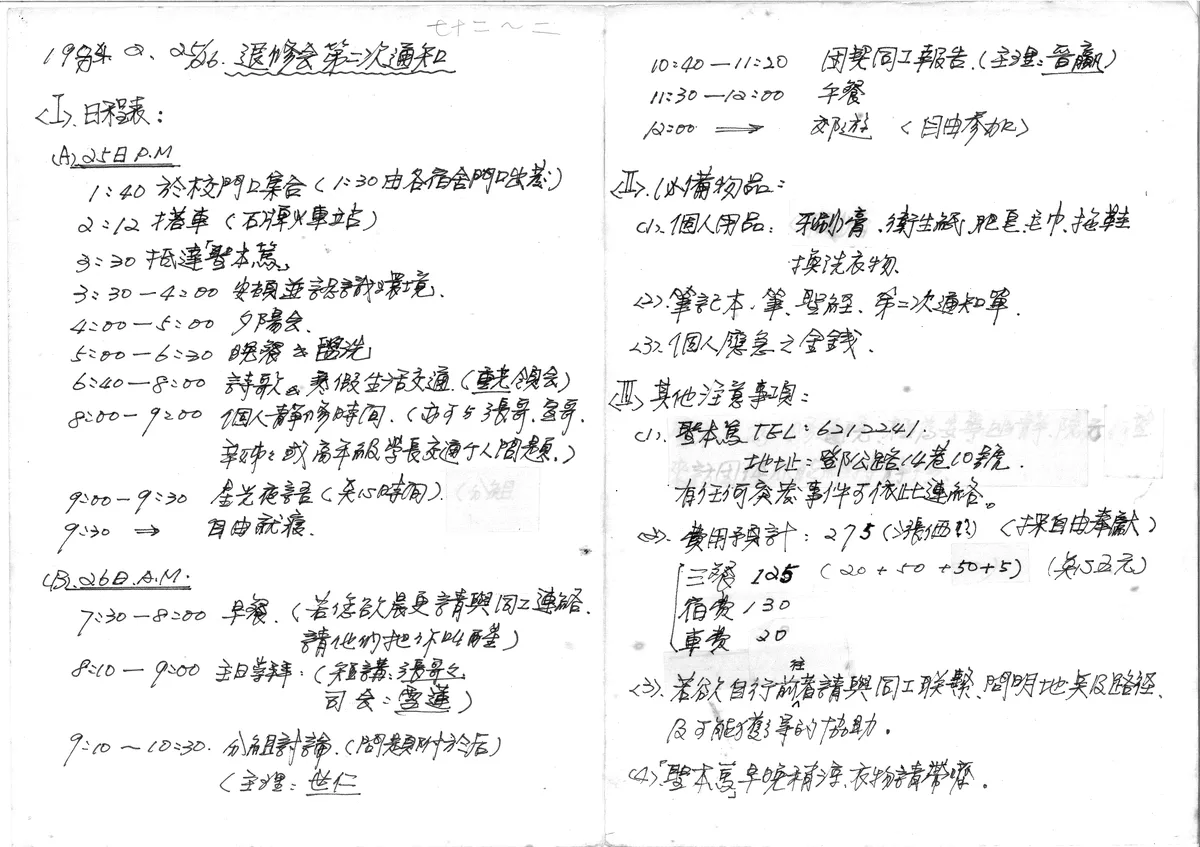 七十二～二
25/26. 退修会第二次通知
<I>. 日程表：
(A). 25日 P.M
1:40 於校門口集合 (1:30由各宿舍門口出發)
2:12 搭車 (石牌火車站)
3:30 抵達「聖本篤」
3:30—4:00 安頓並認識環境.
4:00—5:00 夕陽会.
5:00—6:30 晚餐 盥洗
6:40—8:00 詩歌 寒假生活交通.
8:00—9:00 個人靜修時間. (亦可与張哥.
或高年級學長交通个人問題.)
9:00—9:30 星光夜語 (点心時間).
(分組
9:30 ⇒ 自由就寢.
(B). 26日. A.M.
7:30—8:00 早餐. (若您欲晨更請與同工連絡.
請他們把你叫醒)
8:10—9:00 主日崇拜: (短講: 張哥
司会: 雪蓮)
9:10～10:30. 分組討論. (問題附於后)
(主理: 世仁
10:40—11:20 团契同工報告. (主理: 晋贏)
11:30—12:00 午餐
12:00 ⇒ 郊遊 <自由參加>
<II>. 必備物品：
(1). 個人用品: 牙刷膏. 衛生紙、肥皂、毛巾、拖鞋
換洗衣物.
(2). 筆記本、筆、聖經、第二次通知單.
(3). 個人應急之金錢.
<III>. 其他注意事項：
(1). 聖本篤 TEL: 6212241.
地址: 鄧公路14巷10號.
有任何突发事件可依此連絡。
(2). 費用預計: 275 <採自由奉獻>
三餐 125 (20+50+50+5) (点心五元)
宿費 130
車費 20
(3). 若欲自行前往者請與同工联繫、問明地点及路徑、
及可能獲得的協助。
(4).「聖本篤」早晚稍涼、衣物請帶齊。